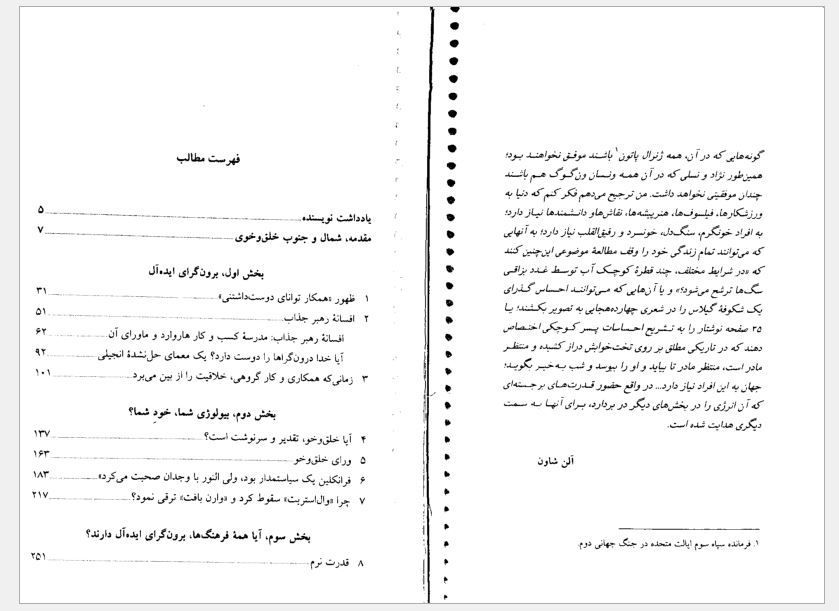 گونه‌هایی که در آن، همه ژنرال پاتون۱ باشند موفق نخواهند بود؛
همین‌طور نژاد و نسلی که در آن همه ونسان ون‌گوگ هم باشند
چندان موفقیتی نخواهد داشت. من ترجیح می‌دهم فکر کنم که دنیا به
ورزشکارها، فیلسوف‌ها، هنرپیشه‌ها، نقاش‌ها و دانشمندها نیاز دارد؛
به افراد خونگرم، سنگ‌دل، خونسرد و رقیق‌القلب نیاز دارد؛ به آنهایی
که می‌توانند تمام زندگی خود را وقف مطالعهٔ موضوعی این‌چنین کنند
که «در شرایط مختلف، چند قطرهٔ کوچک آب توسط غدد بزاقی
سگ‌ها ترشح می‌شود؟» و یا آن‌هایی که می‌توانند احساس گذرای
یک شکوفهٔ گیلاس را در شعری چهارده‌هجایی به تصویر بکشند؛ یا
۲۵ صفحه نوشتار را به تشریح احساسات پسر کوچکی اختصاص
دهند که در تاریکی مطلق بر روی تخت‌خوابش دراز کشیده و منتظر
مادر است، منتظر مادر تا بیاید و او را ببوسد و شب به‌خیر بگوید؛
جهان به این افراد نیاز دارد... در واقع حضور قدرت‌های برجسته‌ای
که آن انرژی را در بخش‌های دیگر در بردارد، برای آنها به سمت
دیگری هدایت شده است.
آلن شاون
۱. فرمانده سپاه سوم ایالت متحده در جنگ جهانی دوم.
فهرست مطالب
یادداشت نویسنده ۵
مقدمه، شمال و جنوب خلق‌وخوی ۷
بخش اول، برون‌گرای ایده‌آل
۱ ظهور «همکار توانای دوست‌داشتنی» ۳۱
۲ افسانهٔ رهبر جذاب ۵۱
افسانهٔ رهبر جذاب: مدرسهٔ کسب و کار هاروارد و ماورای آن ۶۲
آیا خدا درون‌گراها را دوست دارد؟ یک معمای حل‌نشدهٔ انجیلی ۹۲
۳ زمانی‌که همکاری و کار گروهی، خلاقیت را از بین می‌برد ۱۰۱
بخش دوم، بیولوژی شما، خودِ شما؟
۴ آیا خلق‌وخو، تقدیر و سرنوشت است؟ ۱۳۷
۵ ورای خلق‌وخو ۱۶۳
۶ فرانکلین یک سیاستمدار بود، ولی النور با وجدان صحبت می‌کرد» ۱۸۳
۷ چرا «وال‌استریت» سقوط کرد و «وارن بافت» ترقی نمود؟ ۲۱۷
بخش سوم، آیا همهٔ فرهنگ‌ها، برون‌گرای ایده‌آل دارند؟
۸ قدرت نرم ۲۵۱